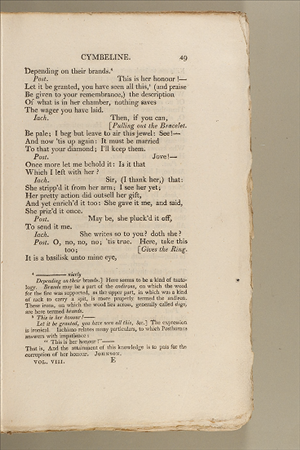 CYMBELINE. 49
Depending on their brands.⁴
Post. This is her honour!—
Let it be granted, you have seen all this,⁵ (and praise
Be given to your remembrance,) the description
Of what is in her chamber, nothing saves
The wager you have laid.
Iach. Then, if you can,
[Pulling out the Bracelet.
Be pale; I beg but leave to air this jewel: See!—
And now 'tis up again: It must be married
To that your diamond; I'll keep them.
Post. Jove!—
Once more let me behold it: Is it that
Which I left with her?
Iach. Sir, (I thank her,) that:
She stripp'd it from her arm; I see her yet;
Her pretty action did outsell her gift,
And yet enrich'd it too: She gave it me, and said,
She priz'd it once.
Post. May be, she pluck'd it off,
To send it me.
Iach. She writes so to you? doth she?
Post. O, no, no, no; 'tis true. Here, take this
too; [Gives the Ring.
It is a basilisk unto mine eye,
⁴ ——— nicely
Depending on their brands.] Here seems to be a kind of tautology.
Brands may be a part of the andirons, on which the wood
for the fire was supported, as the upper part, in which was a kind
of rack to carry a spit, is more properly termed the andiron.
These irons, on which the wood lies across, generally called dogs,
are here termed brands.
⁵ This is her honour!—
Let it be granted, you have seen all this, &c.] The expression
is ironical. Iachimo relates many particulars, to which Posthumus
answers with impatience:
" This is her honour!"——
That is, And the attainment of this knowledge is to pass for the
corruption of her honour. JOHNSON.
VOL. VIII. E